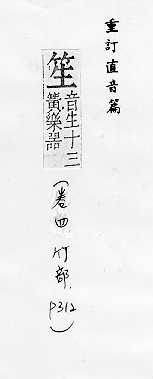 重訂直音篇
笙音生十三
簧樂器
(卷四 竹部 P312)